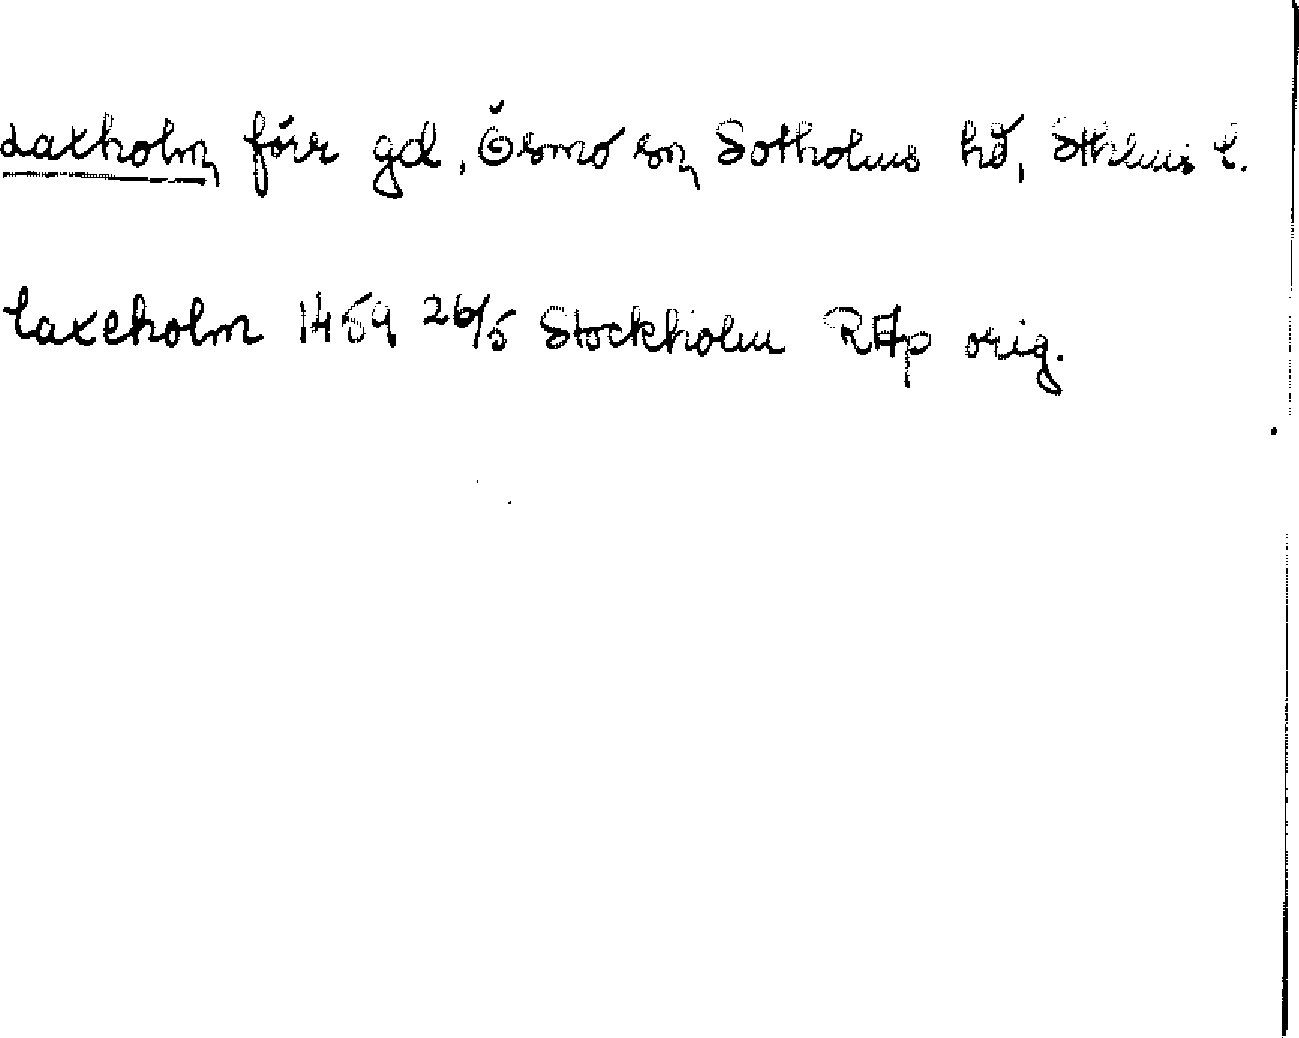 Laxholm förr gd, Ösmo sn, Sotholms hd, Sthlms l.
laxeholm 1459 26/5 Stockholm RAp orig.